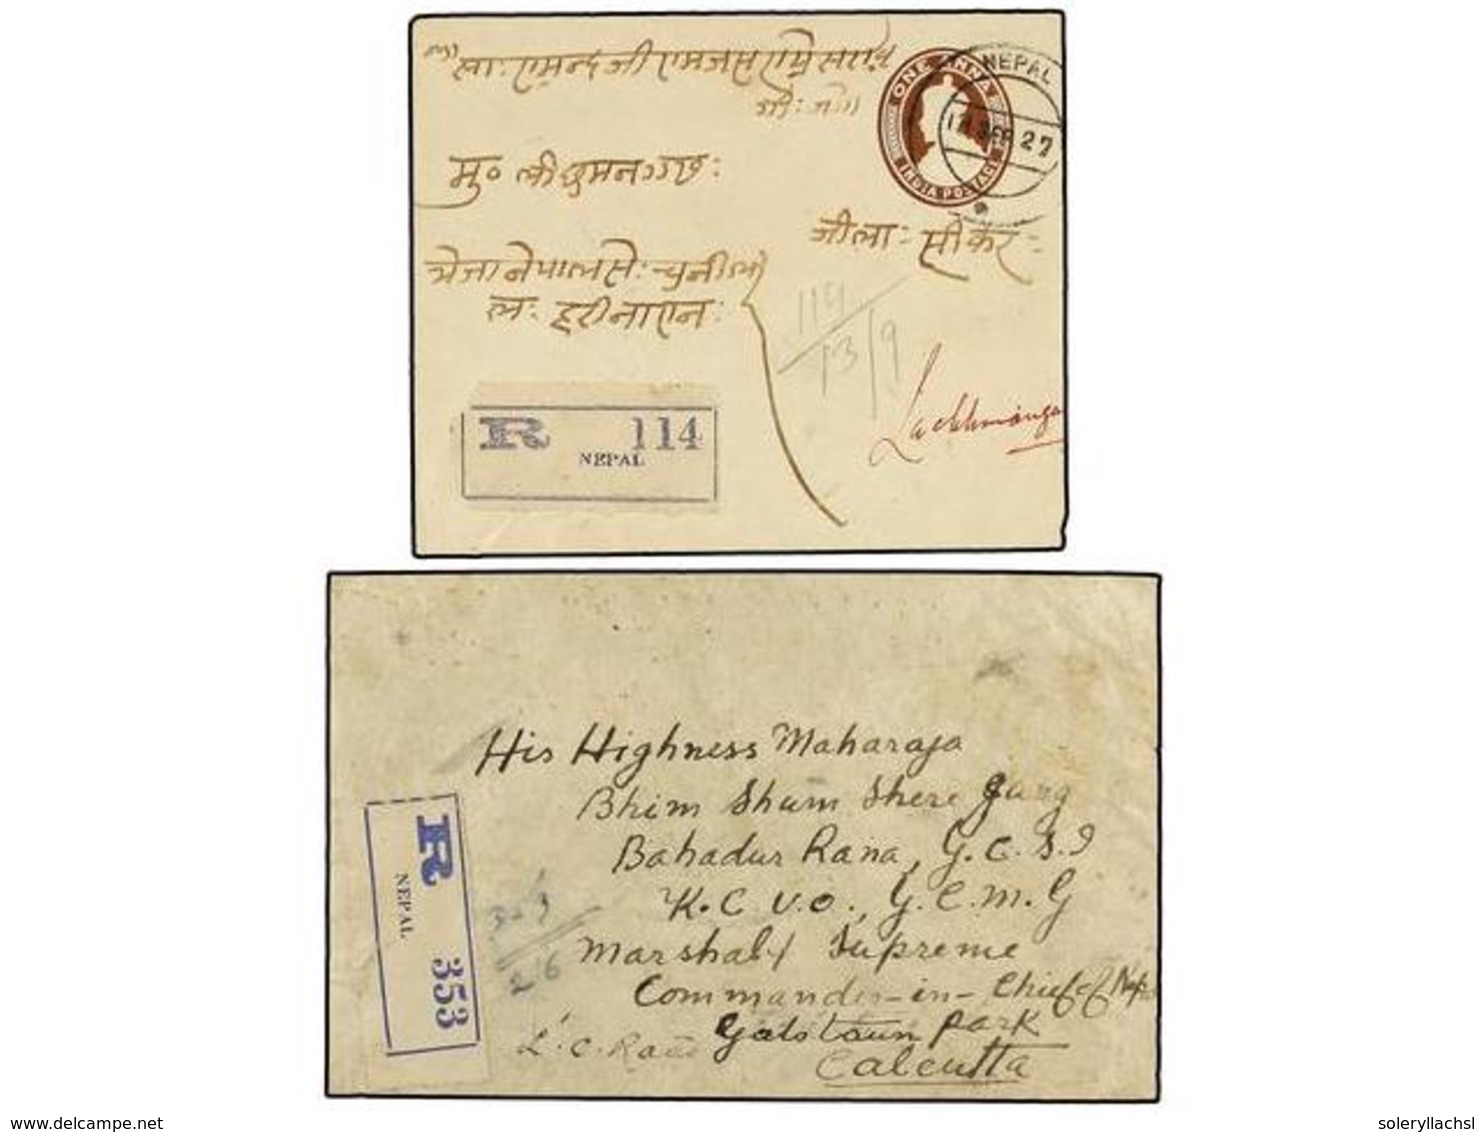 ONE ANNA
INDIA POSTAGE
NEPAL
SEP 27
मु० लीछमनगढ:
जीला: सीकर:
भेजा नेपालसे: चुनीला
ल: हरीनाएन:
114
13/9
R 114
NEPAL
His Highness Maharaja
Bhim Shum Shere Jung
Bahadur Rana, G.C.S.I
K.C.V.O., G.C.M.G
Marshal Supreme
Commander-in-Chief of
Galstaun Park
L.C. Road
Calcutta
R 353
NEPAL
www.delcampe.net
soleryllachsl